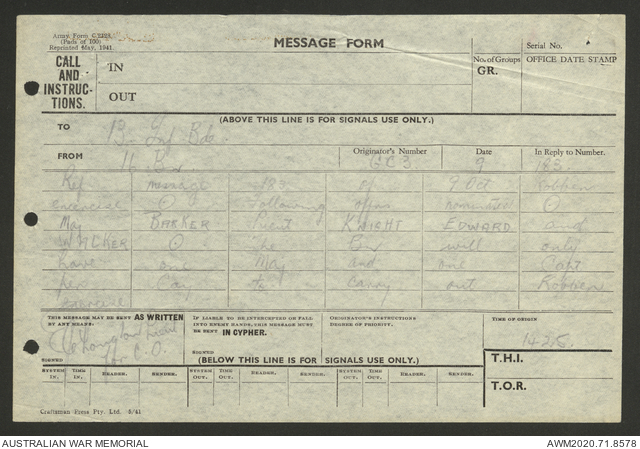 Army Form C.2128.
(Pads of 100)
Reprinted May, 1941.
MESSAGE FORM
Serial No.
CALL AND INSTRUCTIONS.
IN
OUT
No. of Groups
GR.
OFFICE DATE STAMP
(ABOVE THIS LINE IS FOR SIGNALS USE ONLY.)
TO
Inf Bde
FROM
Originator's Number
Date
In Reply to Number
16 Bn
GC3
9
183
Ref message 183 of 9 Oct Robben
exercise ⊙ Following offrs nominated ⊙
May BARKER Lieut KNIGHT EDWARD and
WALKER ⊙ The Bn will only
have one May and one Capt
per Coy to carry out Robben
exercise
THIS MESSAGE MAY BE SENT AS WRITTEN
BY ANY MEANS.
IF LIABLE TO BE INTERCEPTED OR FALL
INTO ENEMY HANDS, THIS MESSAGE MUST
BE SENT IN CYPHER.
ORIGINATOR'S INSTRUCTIONS
DEGREE OF PRIORITY.
TIME OF ORIGIN
1425
Lieut
for C.O.
SIGNED
SIGNED
(BELOW THIS LINE IS FOR SIGNALS USE ONLY.)
T.H.I.
T.O.R.
SYSTEM IN. TIME IN. READER. SENDER. SYSTEM OUT. TIME OUT. READER. SENDER. SYSTEM OUT. TIME OUT. READER. SENDER.
Craftsman Press Pty. Ltd. 5/41
AUSTRALIAN WAR MEMORIAL
AWM2020.71.8578